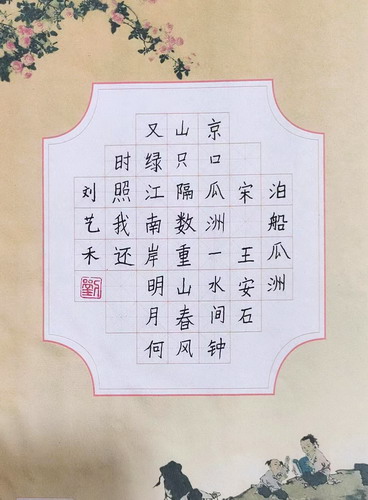 泊船瓜洲
宋 王安石
京口瓜洲一水间钟
山只隔数重山春风
又绿江南岸明月何
时照我还
刘艺禾
劉